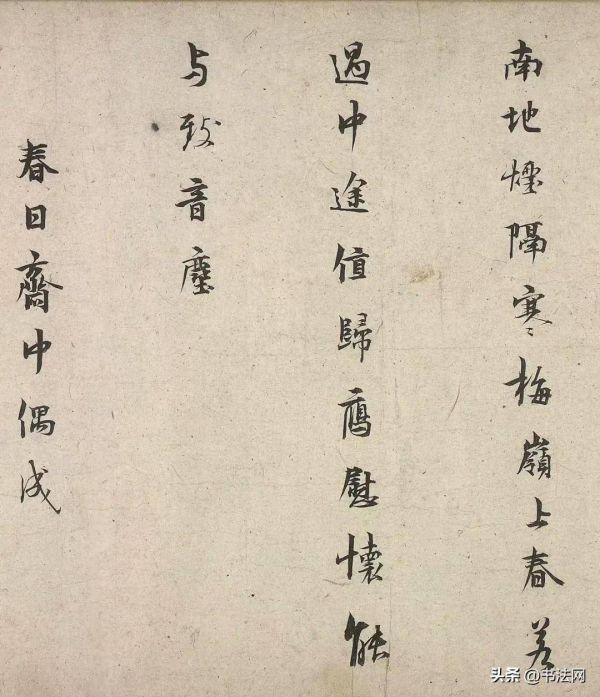 南地煙隔寒梅嶺上春若
遇中途值歸鴈慰懷能
与致音塵
春日齋中偶成
头条 @书法网